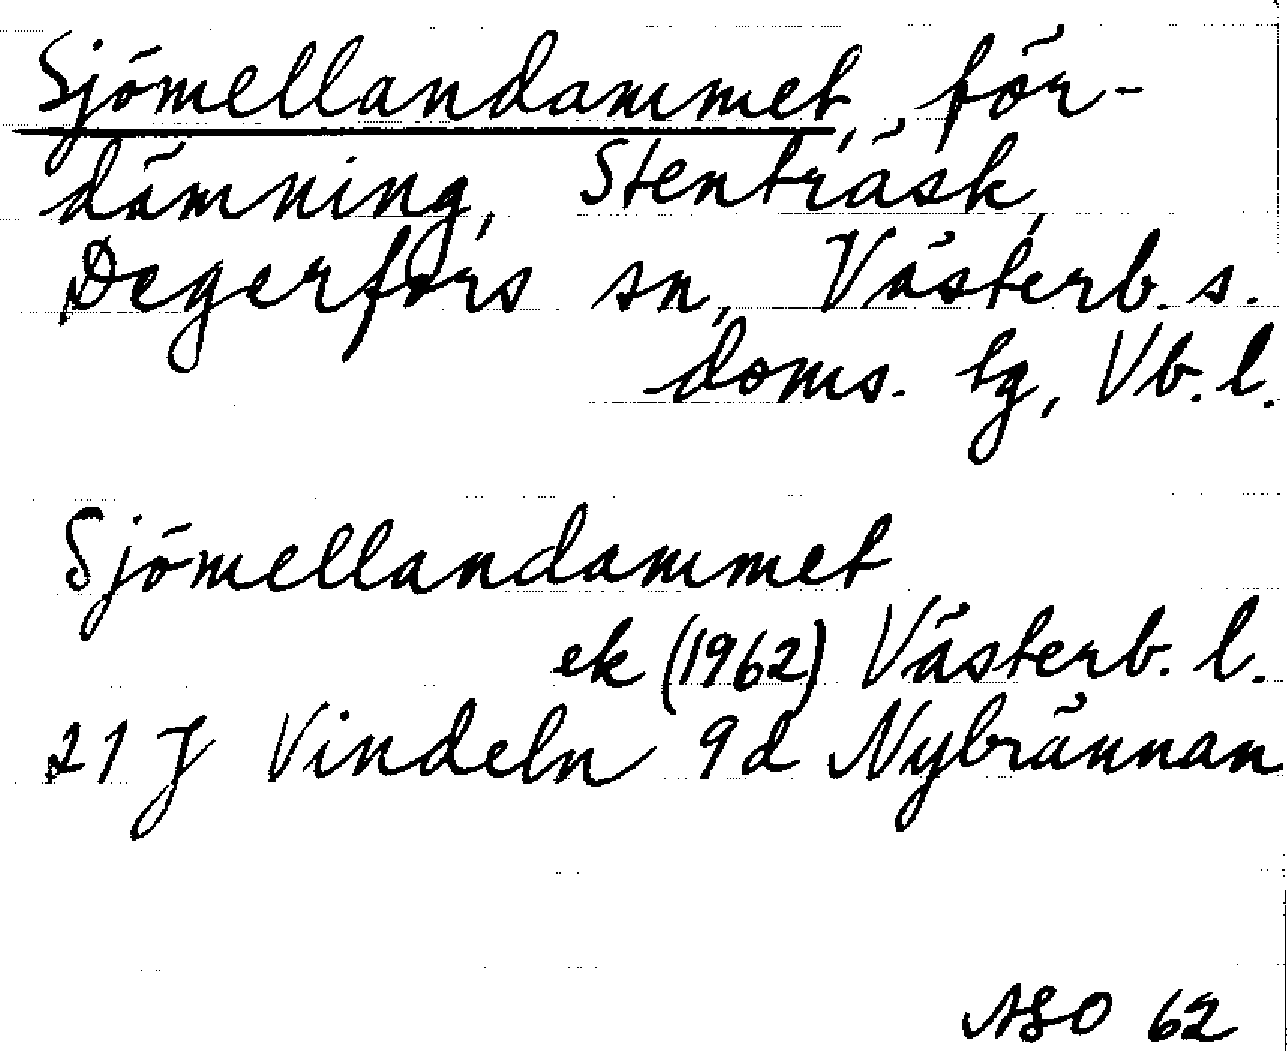 Sjömellandammet, för-
dämning, Stenträsk,
Degerfors sn, Västerb. s.
doms. tg, Vb. l.
Sjömellandammet
ek (1962) Västerb. l.
21 J Vindeln 9d Nybrännan
ASO 62